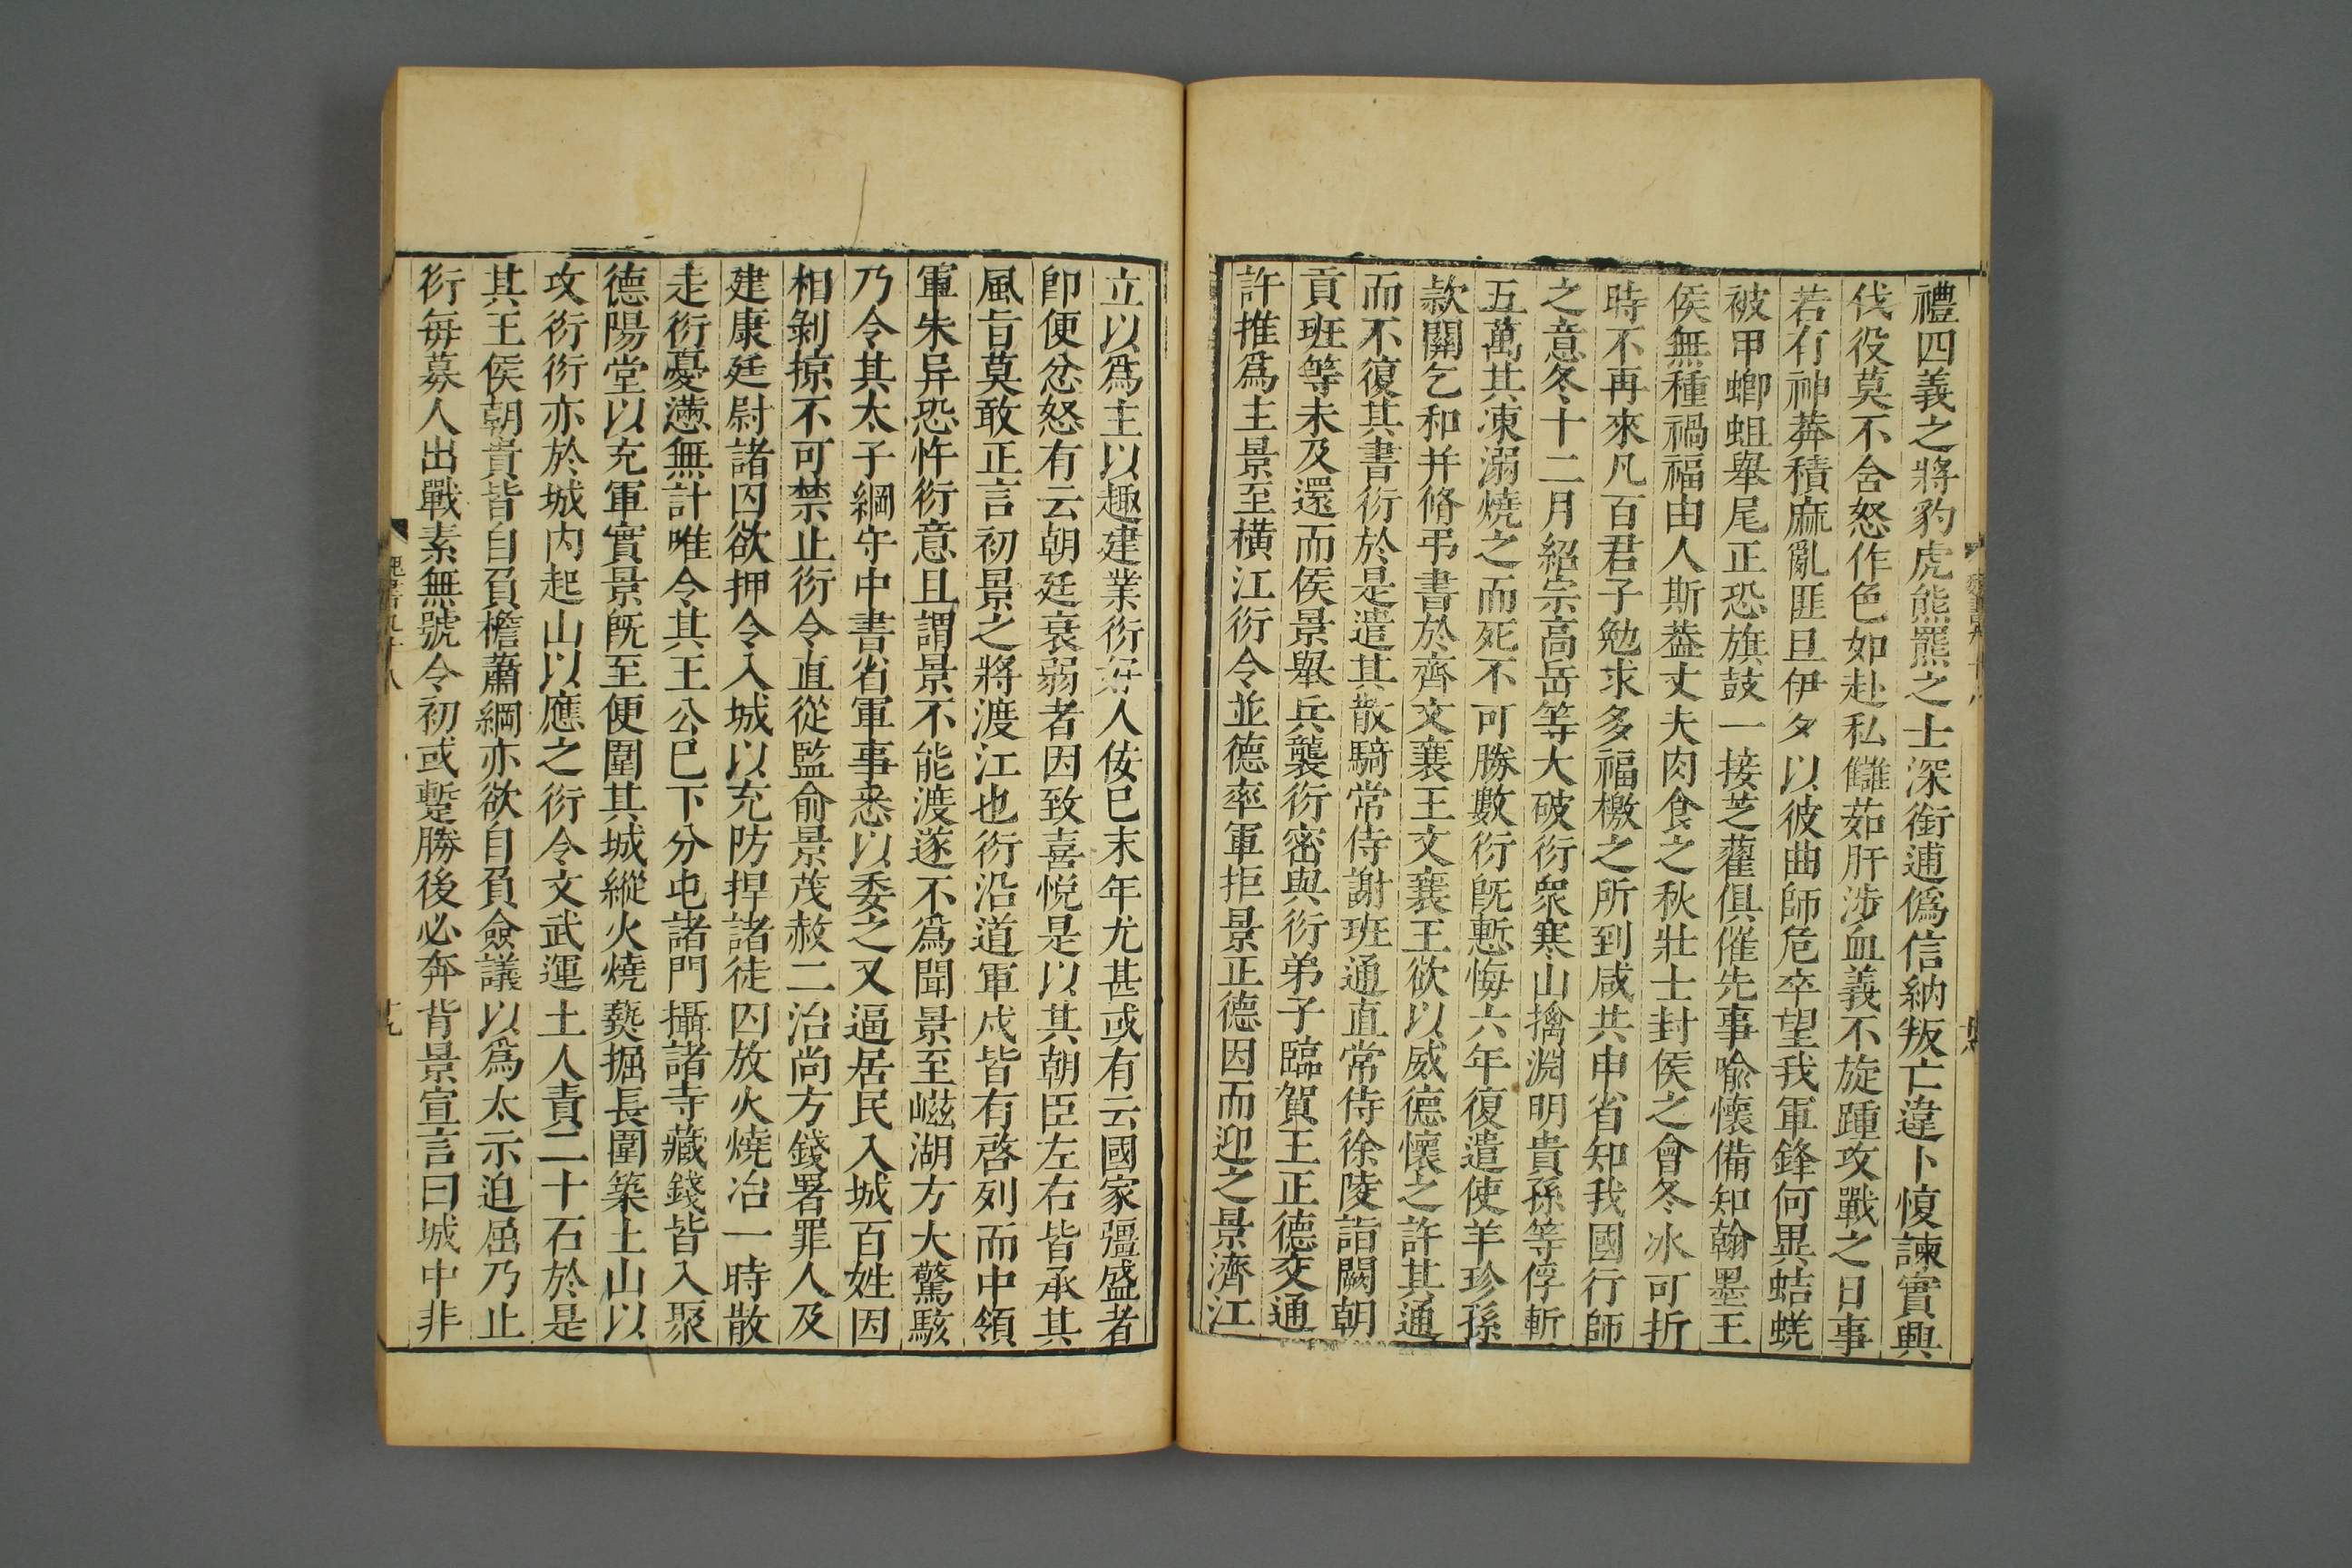 禮四義之將豹虎熊羆之士深銜逋僞信納叛亡違卜愎諫實興
伐役莫不含怒作色如赴私讎茹肝涉血義不旋踵攻戰之日事
若有神莽積麻亂匪旦伊夕以彼曲師危卒望我軍鋒何異蛣蜣
被甲螂蛆舉尾正恐旗鼓一接芝藿俱催先事喻懷備知翰墨王
侯無種禍福由人斯葢丈夫肉食之秋壯士封侯之會冬冰可折
時不再來凡百君子勉求多福檄之所到咸共申省知我國行師
之意冬十二月紹宗高岳等大破衍衆寒山擒淵明貴孫等俘斬
五萬其凍溺燒之而死不可勝數衍旣慙悔六年復遣使羊珍孫
款關乞和并脩弔書於齊文襄王文襄王欲以威德懷之許其通
而不復其書衍於是遣其散騎常侍謝班通直常侍徐陵詣闕朝
貢班等未及還而侯景舉兵襲衍密與衍弟子臨賀王正德交通
許推爲主景至橫江衍令並德率軍拒景正德因而迎之景濟江
立以爲主以趣建業衍好人佞巳末年尤甚或有云國家彊盛者
卽便忿怒有云朝廷衰弱者因致喜悅是以其朝臣左右皆承其
風旨莫敢正言初景之將渡江也衍沿道軍戍皆有啓列而中領
軍朱异恐忤衍意且謂景不能渡遂不爲聞景至嵫湖方大驚駭
乃令其太子綱守中書省軍事悉以委之又逼居民入城百姓因
相剝掠不可禁止衍令直從監俞景茂赦二冶尚方錢署罪人及
建康廷尉諸囚欲押令入城以充防捍諸徒囚放火燒冶一時散
走衍憂懣無計唯令其王公巳下分屯諸門攝諸寺藏錢皆入聚
德陽堂以充軍實景旣至便圍其城縱火燒爇掘長圍築土山以
攻衍衍亦於城内起山以應之衍令文武運土人責二十石於是
其王侯朝貴皆自負檐蕭綱亦欲自負僉議以爲太示迫屈乃止
衍每募人出戰素無號令初或蹔勝後必奔背景宣言曰城中非
魏書九十八
十九